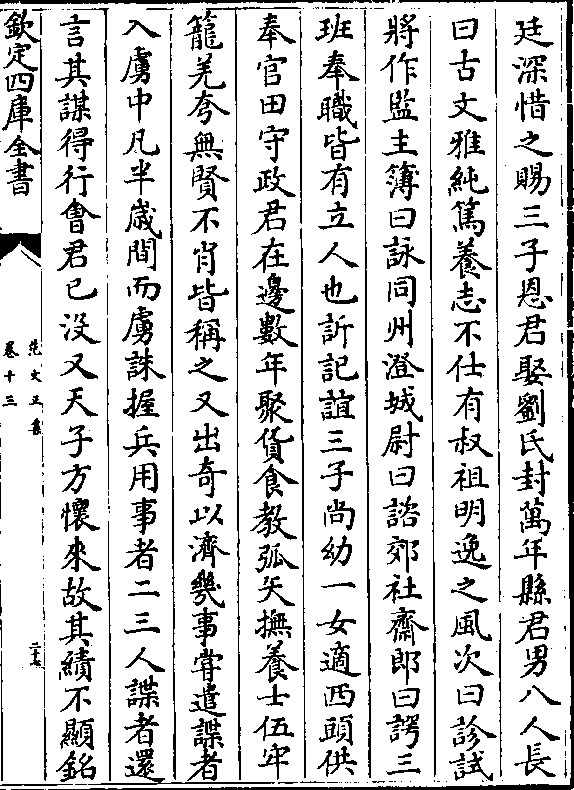 廷深惜之賜三子恩君娶劉氏封萬年縣君男八人長
曰古文雅純篤養志不仕有叔祖明逸之風次曰診試
將作監主簿曰詠同州澄城尉曰諮郊社齋郎曰諤三
班奉職皆有立人也訢記誼三子尚幼一女適西頭供
奉官田守政君在邊數年聚貨食教弧矢撫養士伍牢
籠羌夸無賢不肖皆稱之又出奇以濟幾事嘗遣諜者
入虜中凡半歲間而虜誅握兵用事者二三人諜者還
言其謀得行會君已没又天子方懷來故其績不顯銘
欽定四庫全書
范文正集
卷十三
二十七